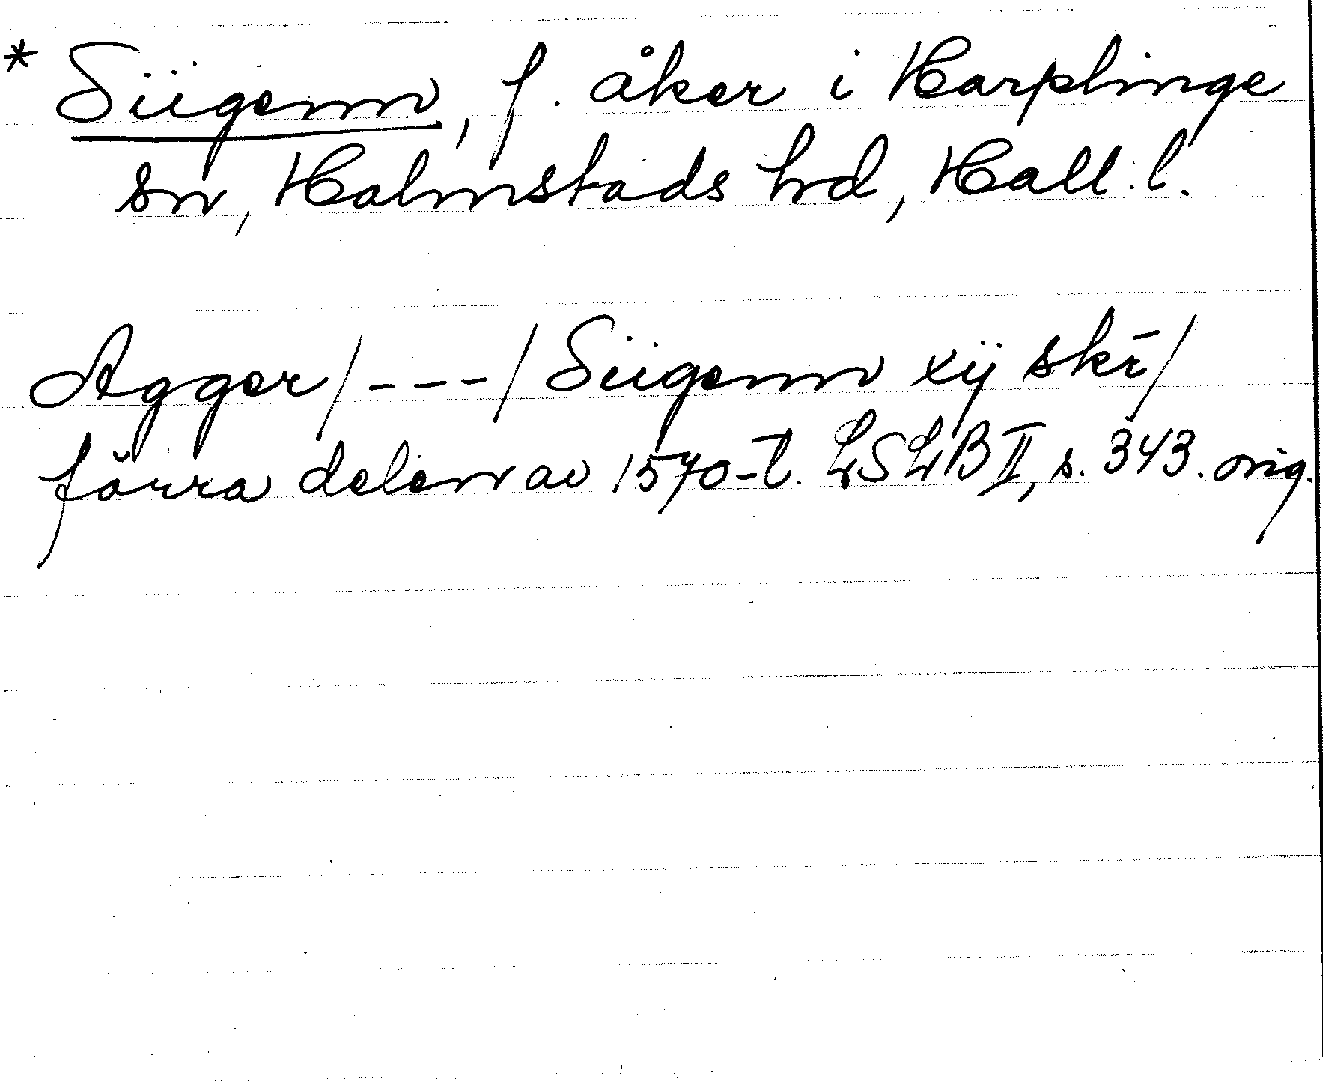 * Siigenn, f. åker i Harplinge
sn, Halmstads hrd, Hall. l.
Agger/---/Siigenn xij skr̄/
förra delen av 1570-t. LSLB II, s. 343. orig.